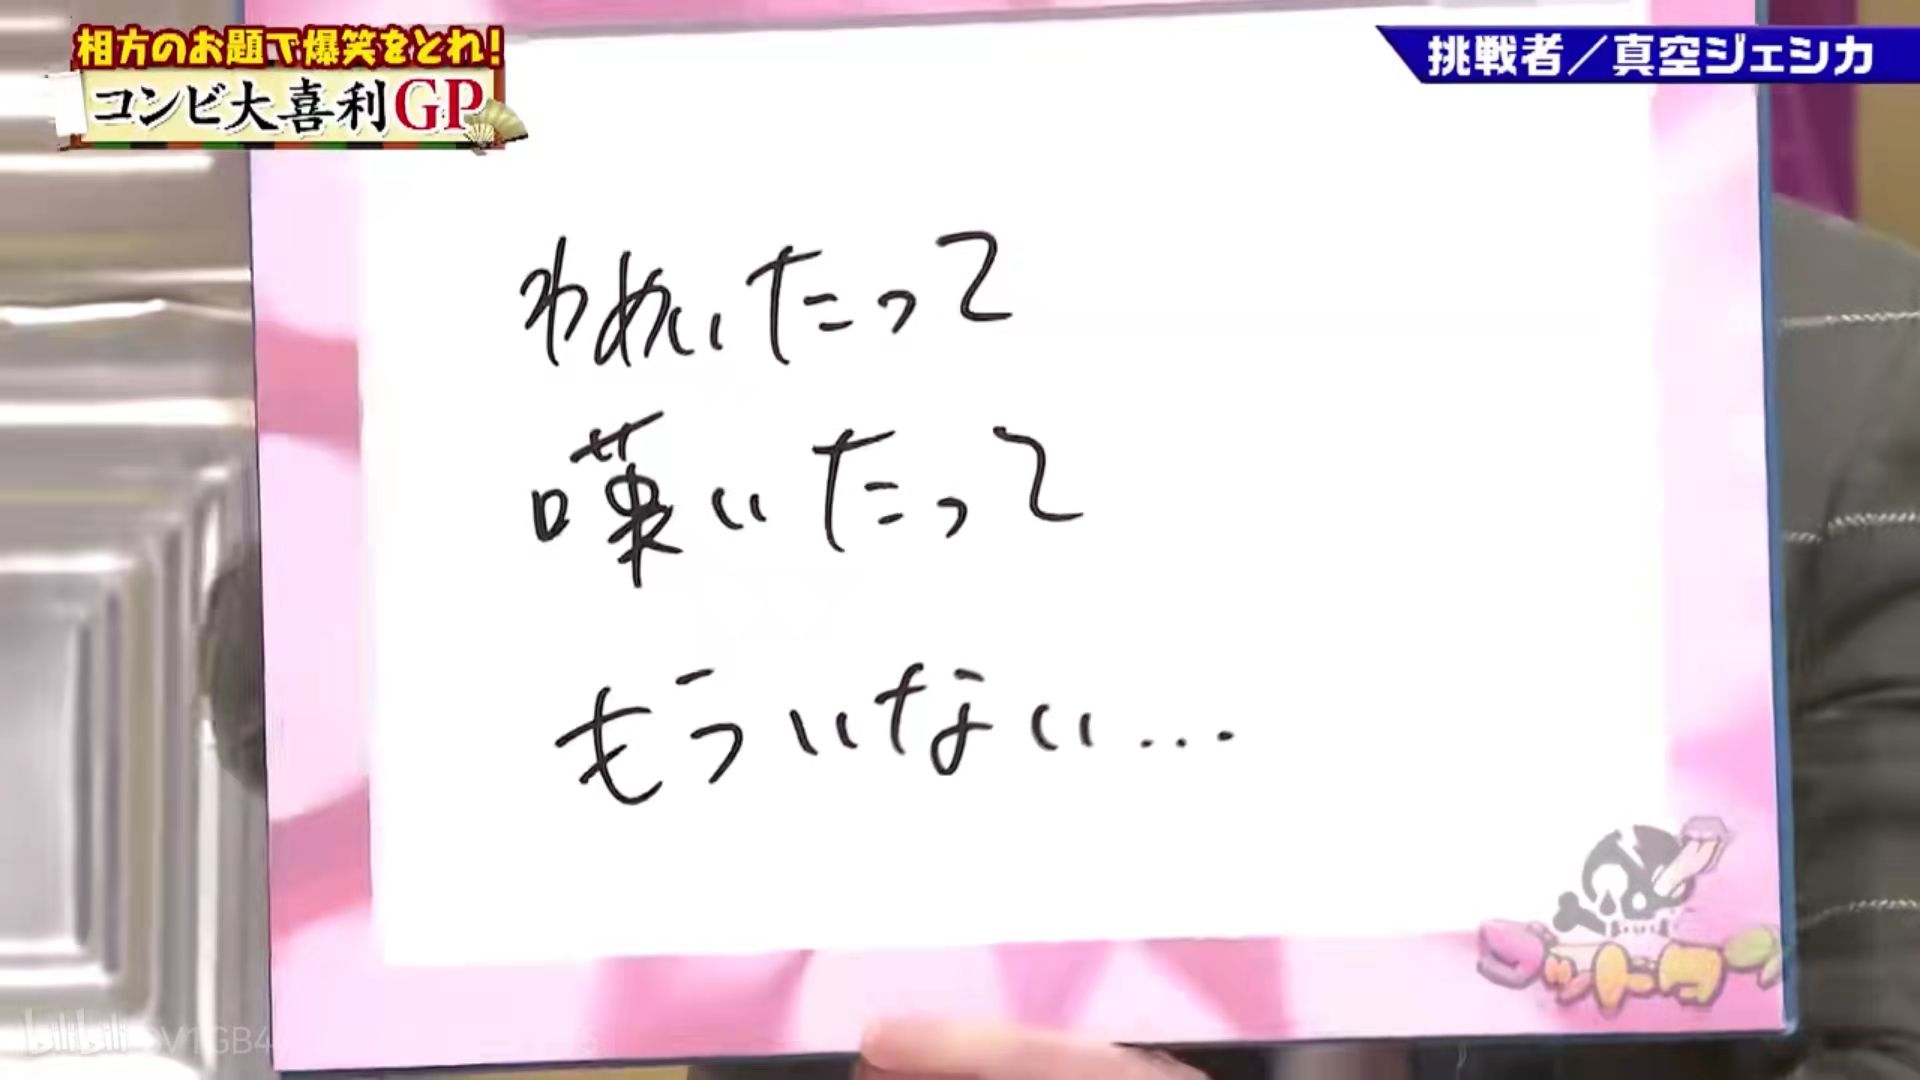 相方のお題で爆笑をとれ!
コンビ大喜利GP
挑戦者/真空ジェシカ
わめいたって
嘆いたって
もういない...
ゴッドタン
bilibili